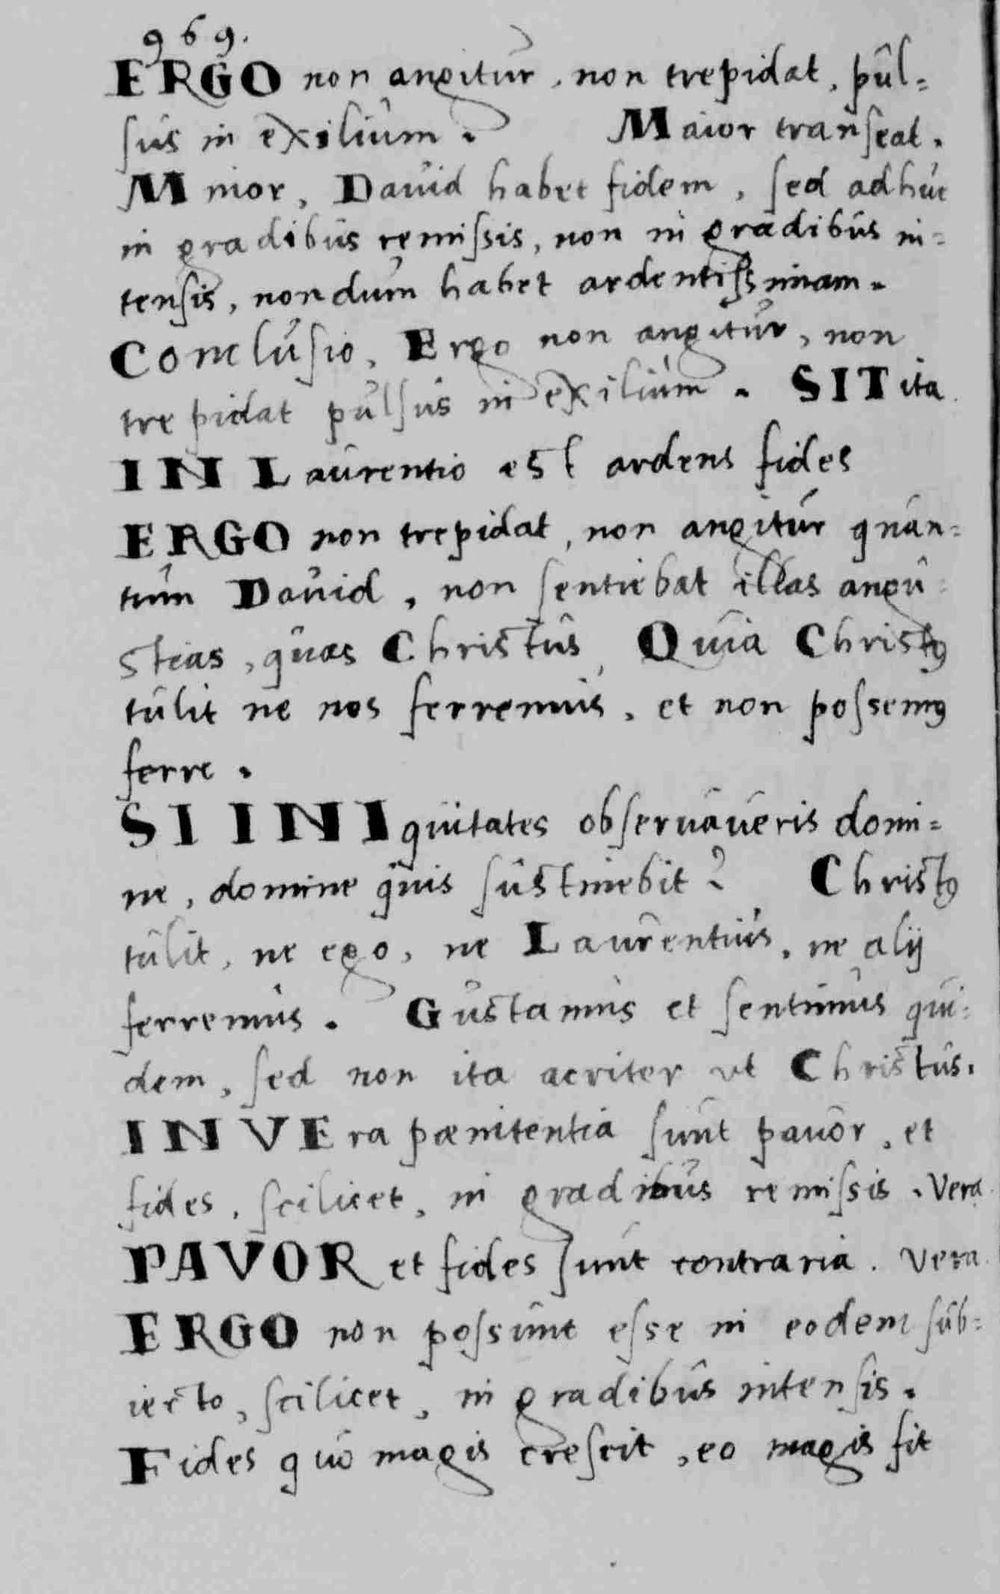 969.
ERGO non angitur, non trepidat, pul=
sus in exilium. Maior transeat.
Minor, Dauid habet fidem, sed adhuc
in gradibus remissis, non in gradibus in=
tensis, nondum habet ardentissimam.
Conclusio, Ergo non angitur, non
trepidat pulsus in exilium. SIT ita.
IN Laurentio est ardens fides
ERGO non trepidat, non angitur quan=
tum Dauid, non sentiebat illas angu=
stias, quas Christus, Quia Christus
tulit ne nos ferremus, et non possemus
ferre.
SI INIquitates obseruaueris domi=
ne, domine quis sustinebit? Christus
tulit, ne ego, ne Laurentius, ne alij
ferremus. Gustamus et sentimus qui=
dem, sed non ita acriter ut Christus.
IN VEra pœnitentia sunt pauor, et
fides, scilicet, in gradibus remissis. Vera.
PAVOR et fides sunt contraria. Vera.
ERGO non possunt esse in eodem sub=
iecto, scilicet, in gradibus intensis.
Fides quo magis crescit, eo magis fit